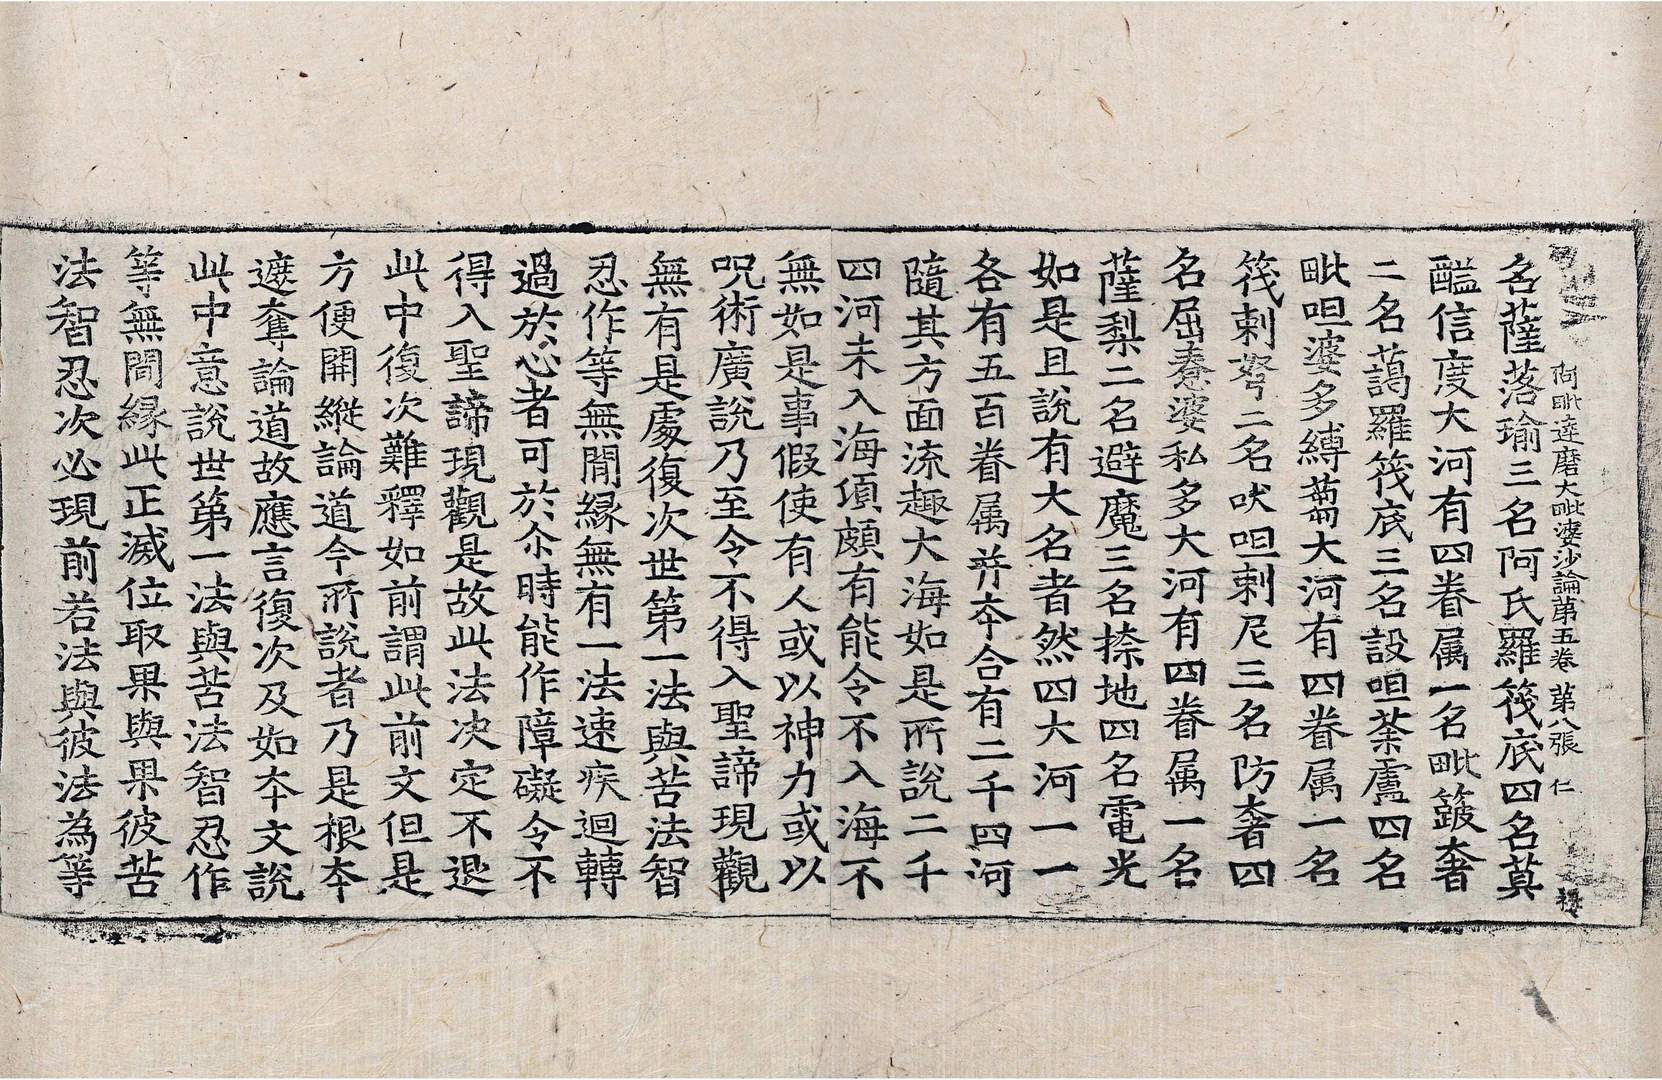 阿毗達磨大毗婆沙論第五卷 第八張 仁
名薩落瑜三名阿氏羅筏底四名莫
醯信度大河有四眷属一名毗簸奢
二名藹羅筏底三名設呾荼盧四名
毗呾婆多縛蒭大河有四眷属一名
筏剌弩二名吠呾剌尼三名防奢四
名屈憃婆私多大河有四眷属一名
薩梨二名避魔三名捺地四名電光
如是且說有大名者然四大河一一
各有五百眷属并夲合有二千四河
隨其方面流趣大海如是所說二千
四河未入海頃頗有能令不入海不
無如是事假使有人或以神力或以
呪術廣說乃至令不得入聖諦現觀
無有是處復次世第一法與苦法智
忍作等無間縁無有一法速疾迴轉
過於心者可於尒時能作障礙令不
得入聖諦現觀是故此法決定不退
此中復次難釋如前謂此前文但是
方便開縱論道今所說者乃是根夲
遮奪論道故應言復次及如夲文說
此中意說世第一法與苦法智忍作
等無間縁此正滅位取果與果彼苦
法智忍次必現前若法與彼法為等